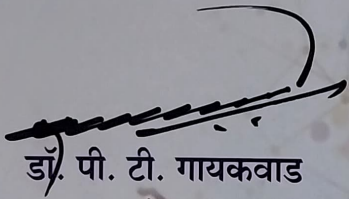 डॉ. पी. टी. गायकवाड